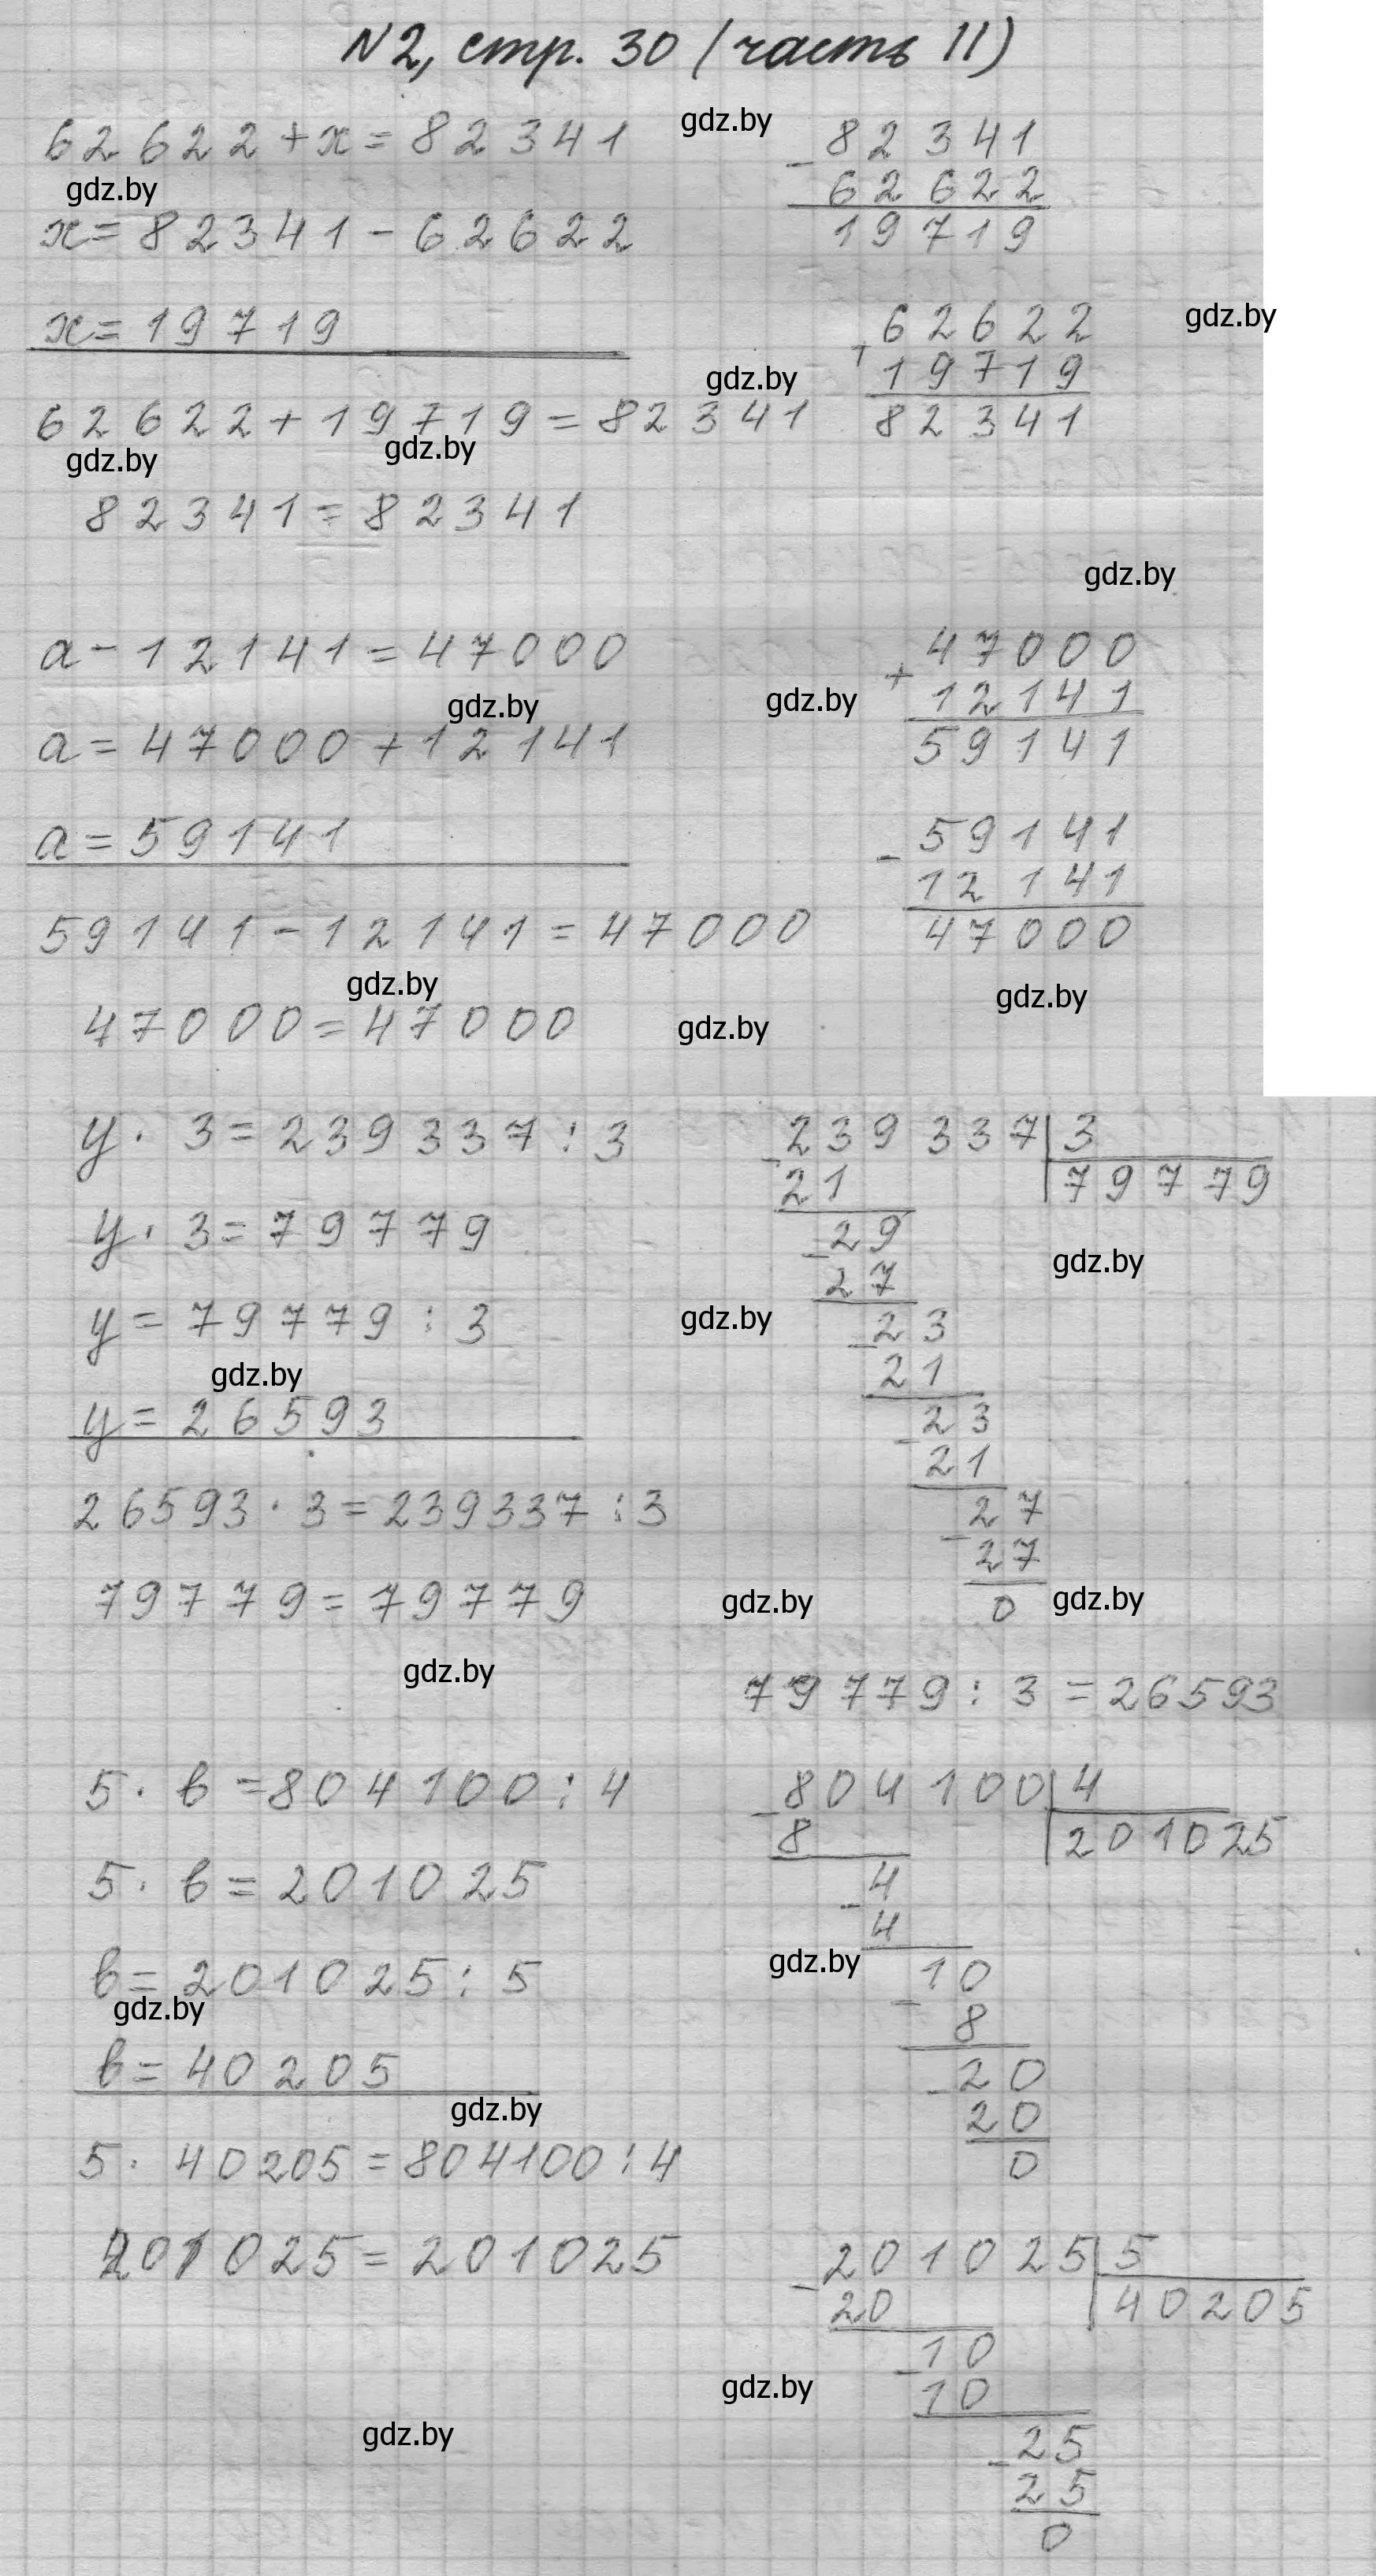 N2, стр. 30 (часть II)
62622+x=82341
gdz.by
82341
-
62622
19719
gdz.by
x=82341-62622
x=19719
gdz.by
62622
+
19719
82341
gdz.by
62622+19719=82341
gdz.by
gdz.by
82341=82341
gdz.by
a-12141=47000
47000
+
12141
59141
gdz.by
gdz.by
a=47000+12141
a=59141
59141
-
12141
47000
59141-12141=47000
gdz.by
gdz.by
47000=47000
gdz.by
y·3=239337:3
-239337|3
21
79779
y·3=79779
-29
27
gdz.by
y=79779:3
gdz.by
-23
21
gdz.by
y=26593
-23
21
26593·3=239337:3
-27
27
0
79779=79779
gdz.by
gdz.by
gdz.by
79779:3=26593
5·b=804100:4
-804100|4
8
201025
5·b=201025
-4
4
gdz.by
b=201025:5
-10
8
gdz.by
b=40205
-20
20
0
gdz.by
5·40205=804100:4
201025=201025
-201025|5
20
40205
-10
10
gdz.by
gdz.by
-25
25
0